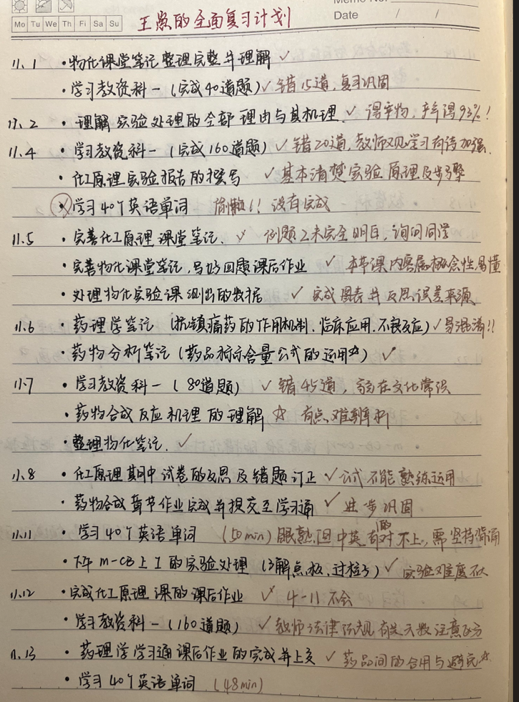 Memo No.
Mo Tu We Th Fr Sa Su
Date / /
王岚的全面复习计划
11.1 · 物化课堂笔记整理完整并理解 ✓
· 学习教资科一(完成40道题) ✓ 错15道,复习巩固
11.2 · 理解实验处理的全部理由与其机理 ✓ 得产物,产率得93%!
11.4 · 学习教资科一(完成160道题) ✓ 错20道,教师观学习有待加强.
· 化工原理实验报告的撰写 ✓ 基本清楚实验原理及步骤
× 学习40个英语单词 偷懒!!没有完成
11.5 · 完善化工原理课堂笔记. ✓ 例题2未完全明白,询问同学
· 完善物化课堂笔记,另好回题课后作业 ✓ 本节课内容属概念性易懂
· 处理物化实验课测出的数据 ✓ 完成图表并反思误差来源
11.6 · 药理学笔记(抗镇痛药的作用机制.临床应用.不良反应) ✓ 易混淆!!
· 药物分析笔记(药品标示含量公式的运用☆) ✓
11.7 · 学习教资科一(80道题) ✓ 错45道,弱在文化常识
· 药物合成反应机理的理解 ☆ 有点难辨析
· 整理物化笔记. ✓
11.8 · 化工原理期中试卷的反思及错题订正 ✓ 公式不能熟练运用
· 药物合成章节作业完成并提交至学习通 ✓ 进步巩固
11.11 · 学习40个英语单词 (50min) 眼熟,但中英有时对不上,需坚持背诵
· 下午m-CB上I的实验处理(3解点板,过柱子) ✓ 实验难度不大
11.12 · 完成化工原理课的课后作业 ✓ 4-11不会
· 学习教资科一(160道题) ✓ 教师法律法规有关天数注意区分
11.13 · 药理学学习通课后作业的完成并上交 ✓ 药品间的合用与避免☆
· 学习40个英语单词 (48min)